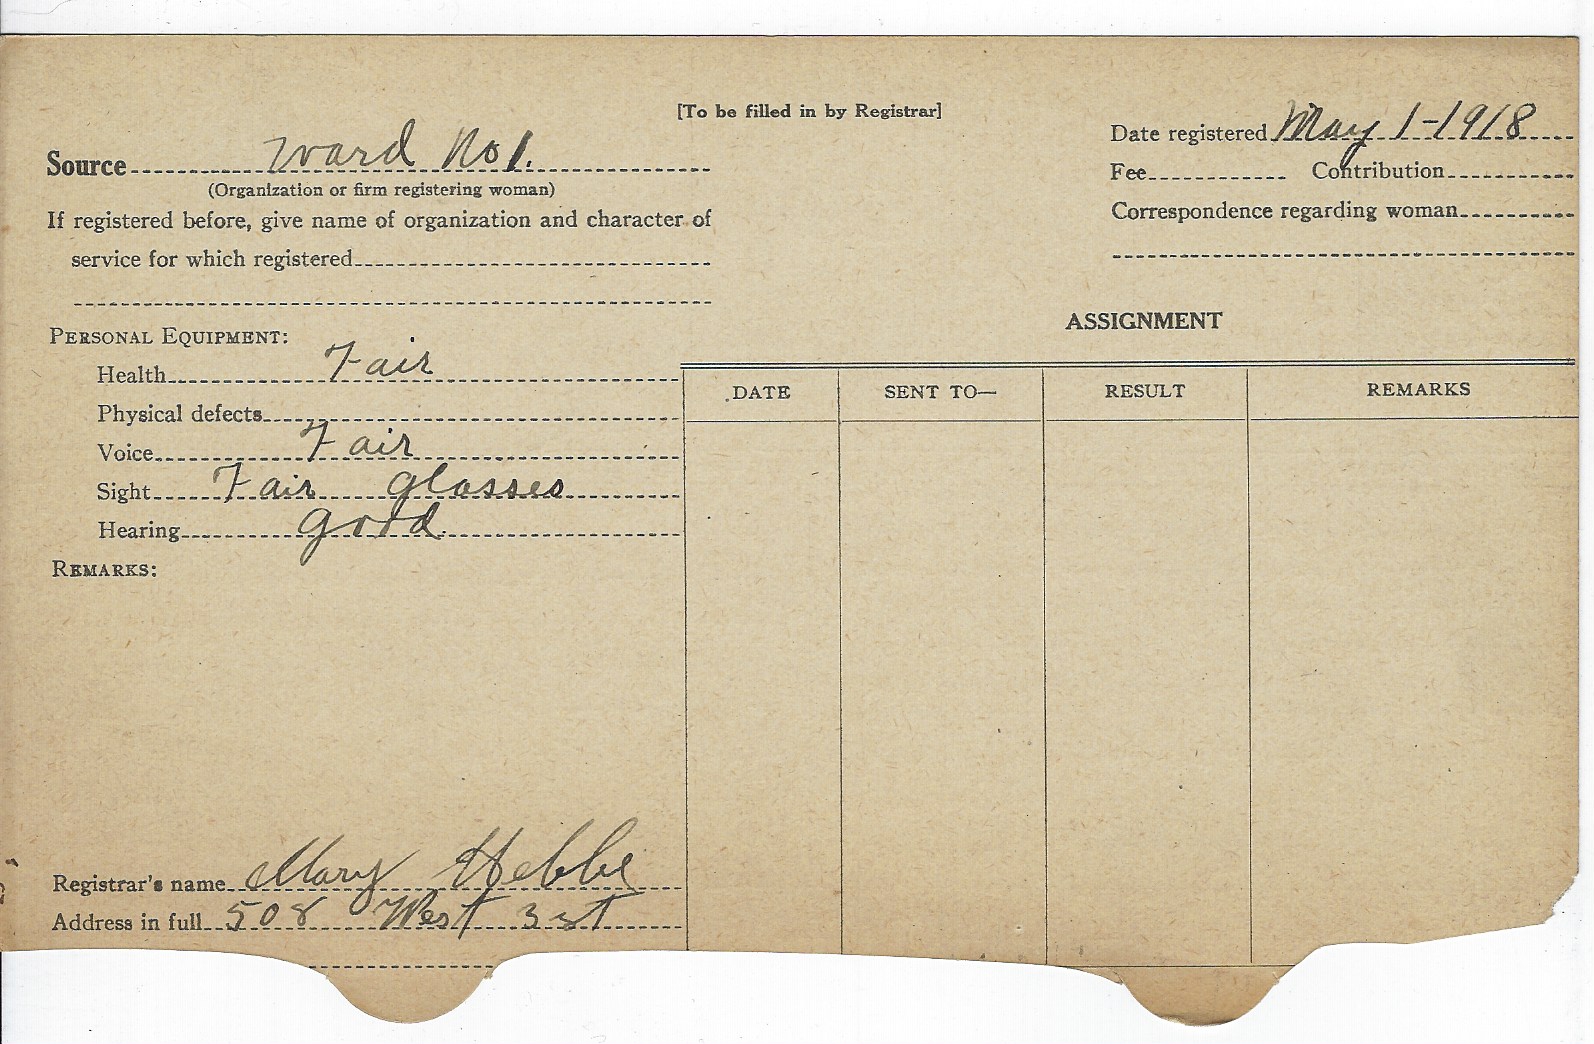 [To be filled in by Registrar]
Source Ward No 1.
(Organization or firm registering woman)
If registered before, give name of organization and character of
service for which registered
Date registered May 1-1918
Fee Contribution
Correspondence regarding woman
PERSONAL EQUIPMENT:
Health Fair
Physical defects
Voice Fair
Sight Fair glasses
Hearing good
REMARKS:
ASSIGNMENT
DATE SENT TO— RESULT REMARKS
Registrar's name Mary Hebbe
Address in full 508 West 3 st